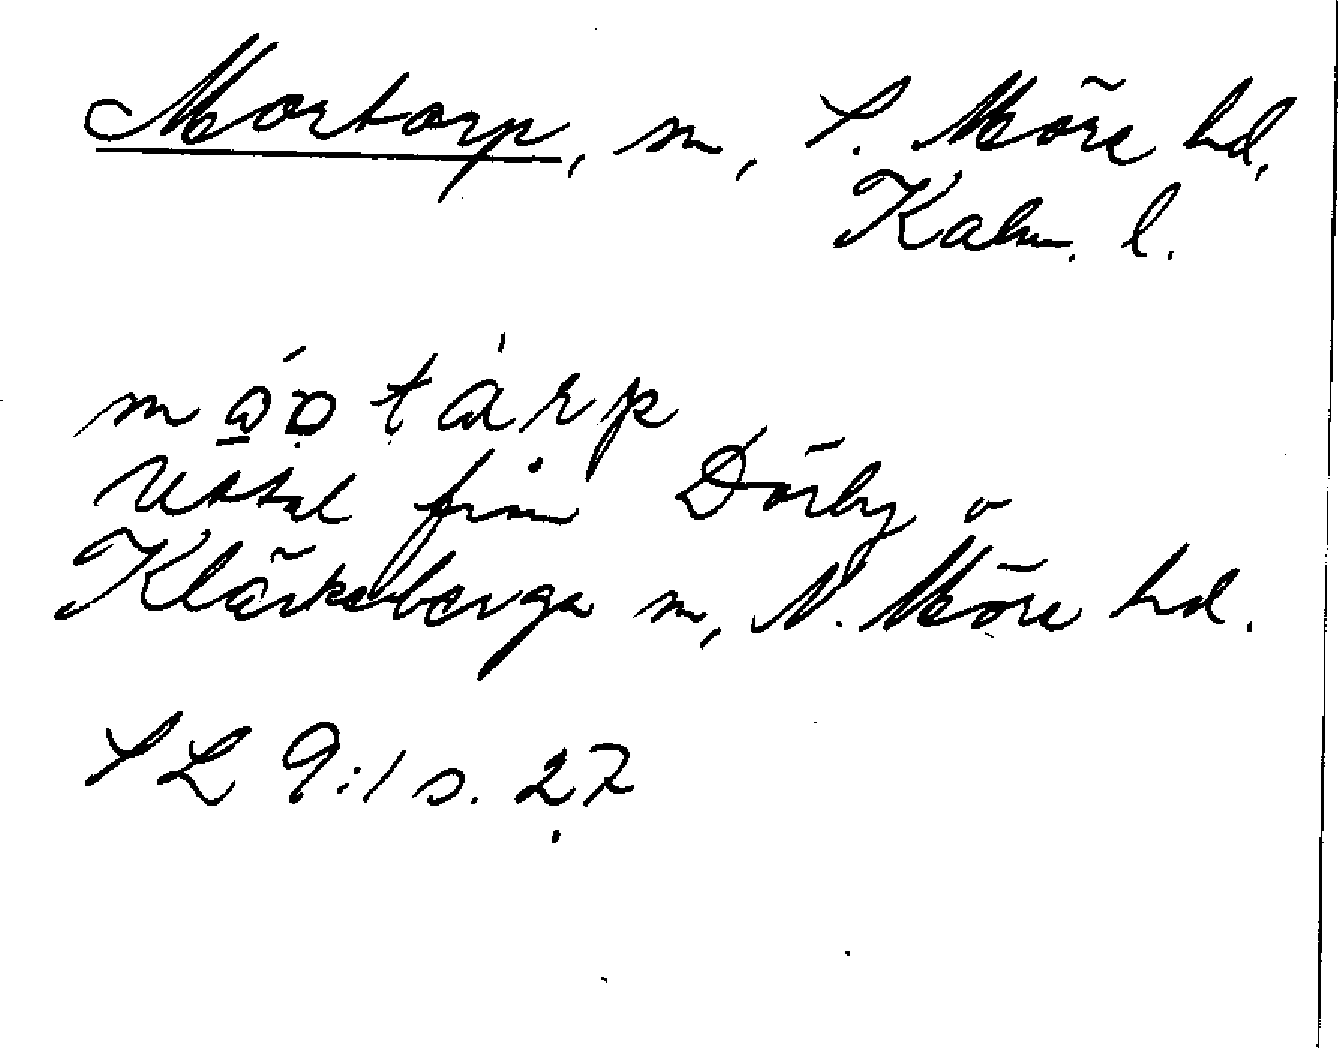 Mortorp, sn, S. Möre hd,
Kalm. l.
Uttal från Dörby o
Kläckeberga sn, N. Möre hd.
SL 9:1 s. 27